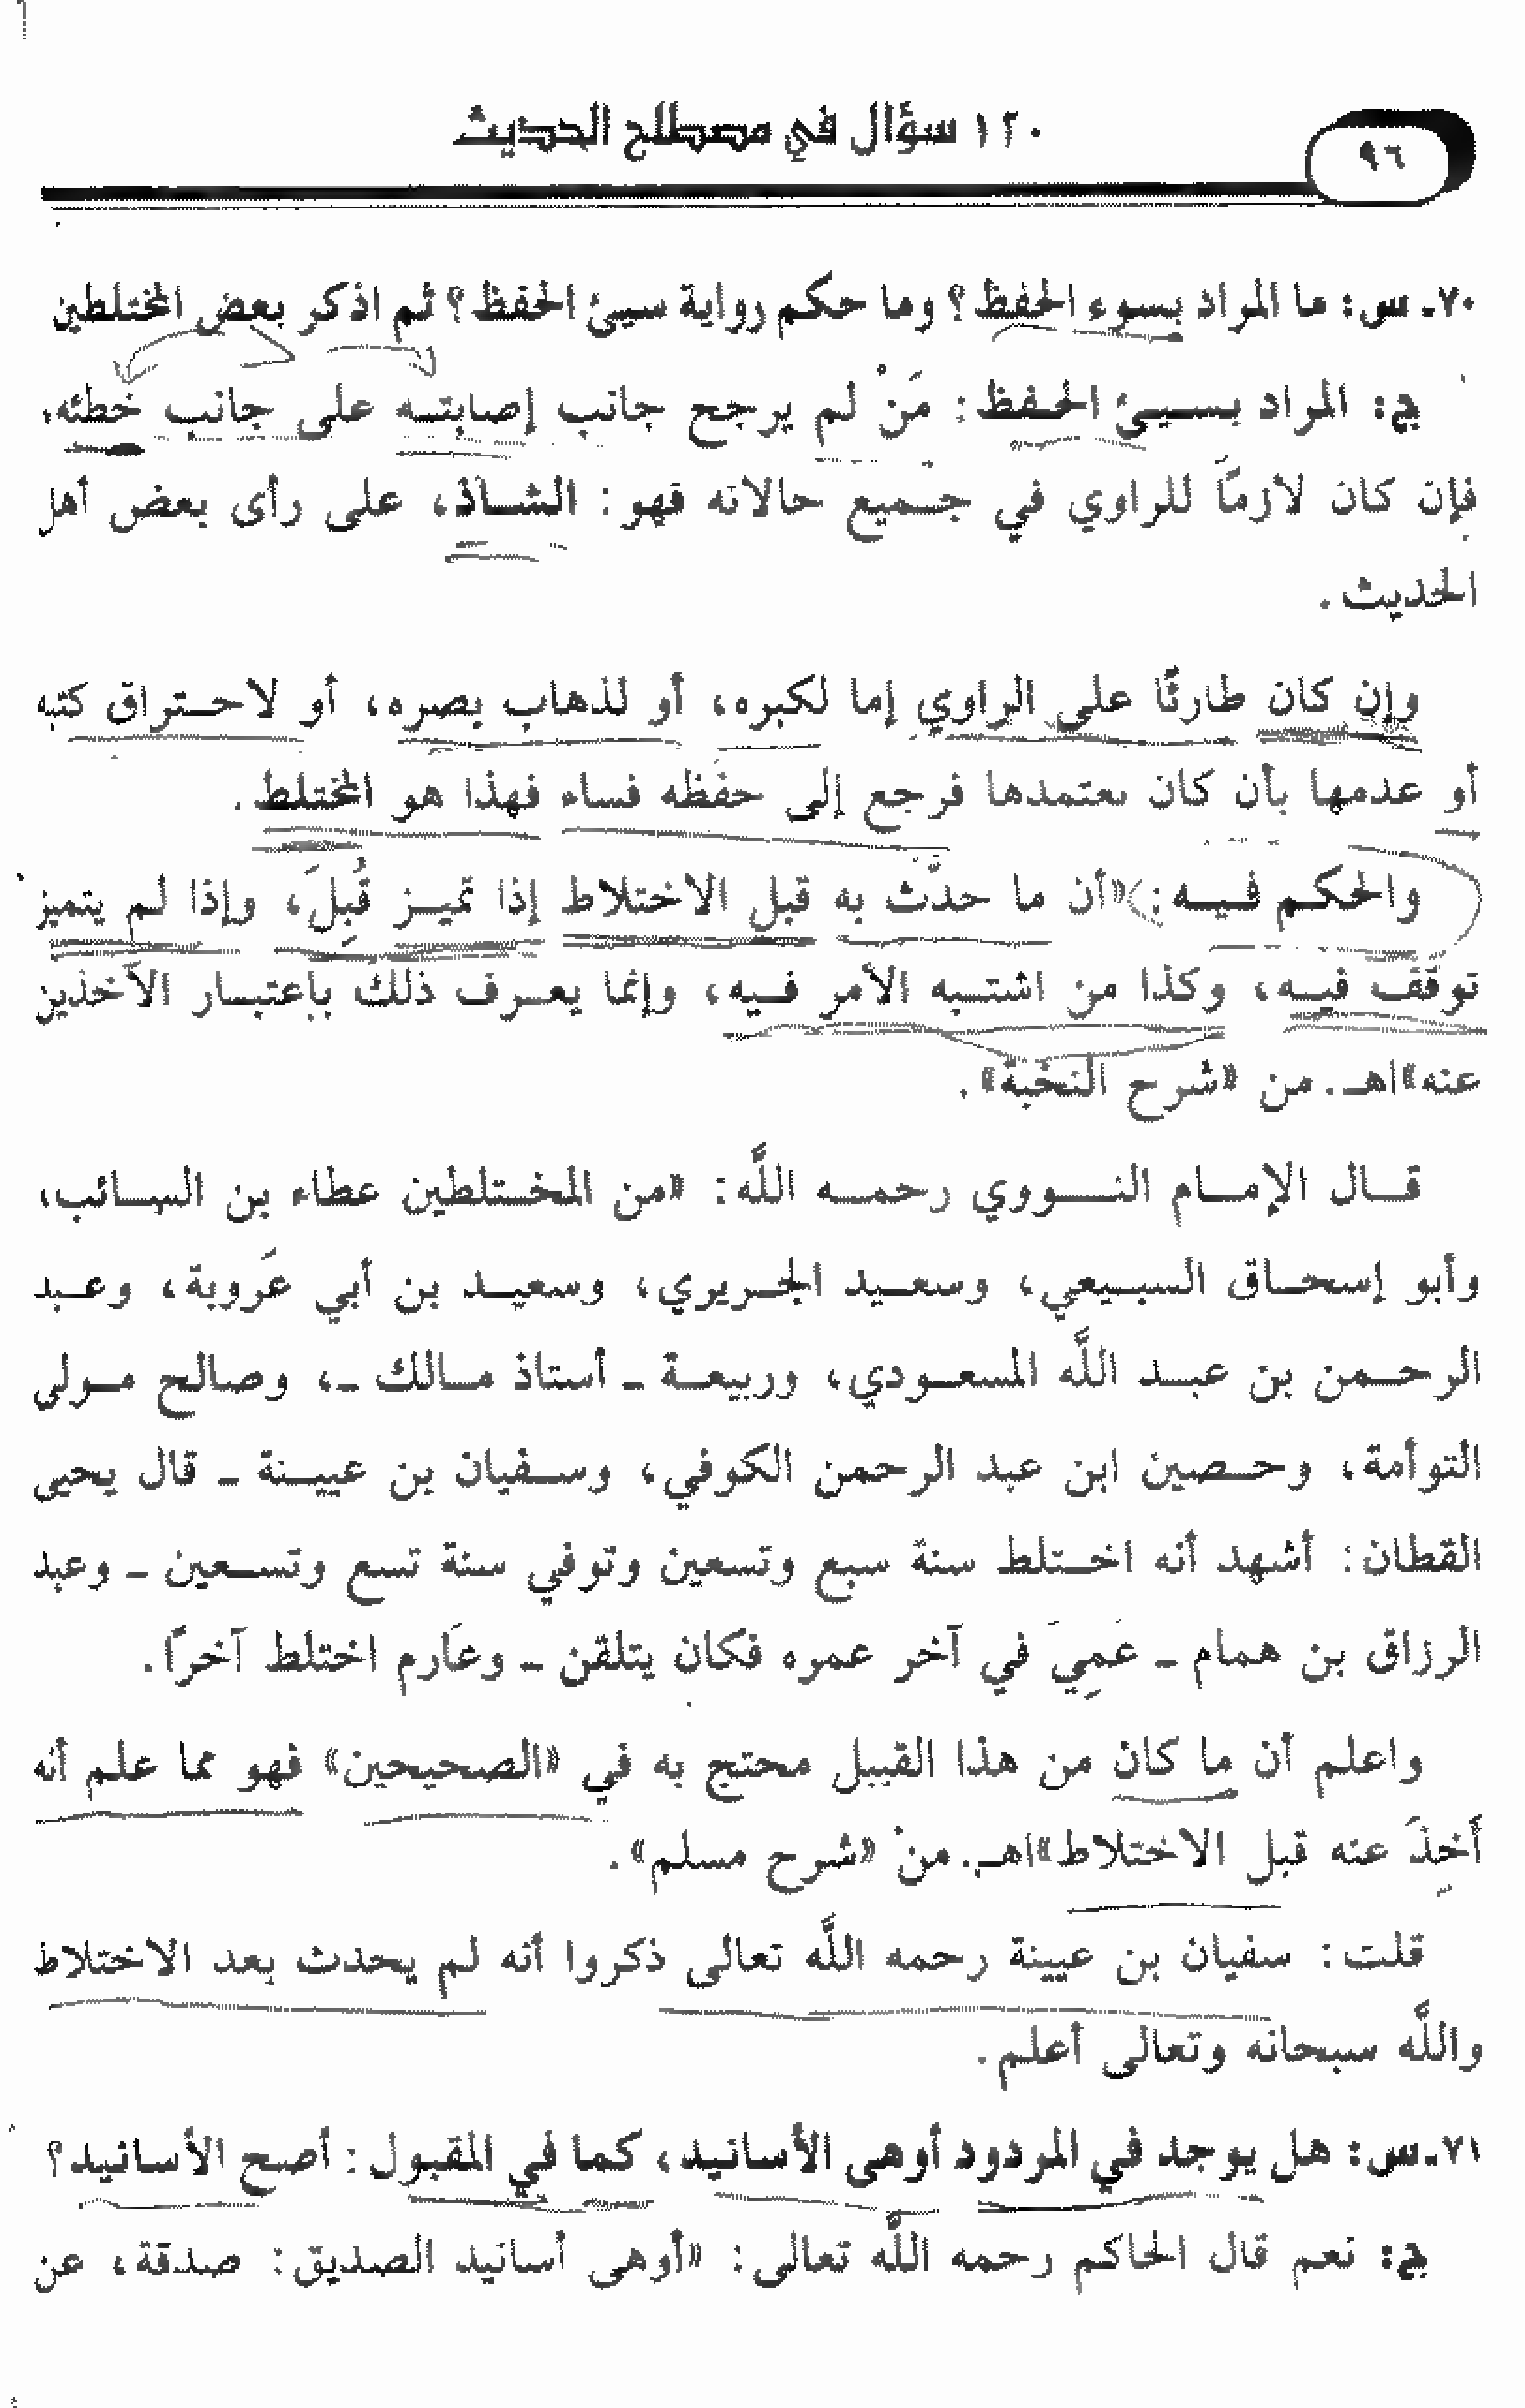 ٩٦
١٢٠ سؤال في مصطلح الحديث
٧٠ـ س: ما المراد بسوء الحفظ؟ وما حكم رواية سيئ الحفظ؟ ثم اذكر بعض المختلطين
ج: المراد بسيئ الحفظ: مَنْ لم يرجح جانب إصابته على جانب خطئه،
فإن كان لازمًا للراوي في جميع حالاته فهو: الشاذ، على رأى بعض أهل
الحديث.
وإن كان طارئًا على الراوي إما لكبره، أو لذهاب بصره، أو لاحتراق كتبه
أو عدمها بأن كان يعتمدها فرجع إلى حفظه فساء فهذا هو المختلط.
والحكم فيه: «أن ما حدَّث به قبل الاختلاط إذا تميز قُبِلَ، وإذا لم يتميز
توقف فيه، وكذا من اشتبه الأمر فيه، وإنما يعرف ذلك باعتبار الآخذين
عنه»اهـ. من «شرح النخبة».
قال الإمام النووي رحمه اللَّه: «من المختلطين عطاء بن السائب،
وأبو إسحاق السبيعي، وسعيد الجريري، وسعيد بن أبي عَروبة، وعبد
الرحمن بن عبد اللَّه المسعودي، وربيعة ـ أستاذ مالك ـ، وصالح مولى
التوأمة، وحصين ابن عبد الرحمن الكوفي، وسفيان بن عيينة ـ قال يحيى
القطان: أشهد أنه اختلط سنة سبع وتسعين وتوفي سنة تسع وتسعين ـ وعبد
الرزاق بن همام ـ عَمِيَ في آخر عمره فكان يتلقن ـ وعَارم اختلط آخرًا.
واعلم أن ما كان من هذا القبيل محتج به في «الصحيحين» فهو مما علم أنه
أُخِذَ عنه قبل الاختلاط»اهـ. منْ «شرح مسلم».
قلت: سفيان بن عيينة رحمه اللَّه تعالى ذكروا أنه لم يحدث بعد الاختلاط
واللَّه سبحانه وتعالى أعلم.
٧١ـ س: هل يوجد في المردود أوهى الأسانيد، كما في المقبول: أصح الأسانيد؟
ج: نعم قال الحاكم رحمه اللَّه تعالى: «أوهى أسانيد الصديق: صدقة، عن